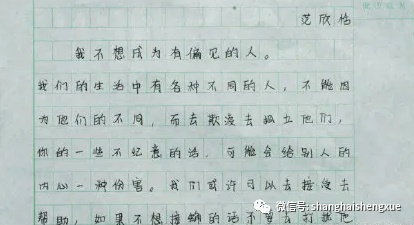 范欣怡
我不想成为有偏见的人。
我们的生活中有各种不同的人，不能因
为他们的不同，而去欺凌去孤立他们，
你的一些不经意的话，可能会给别人的
内心一种伤害。我们或许可以去接受去
帮助，如果不想接触的话不要去打扰他
微信号: shanghaishengxue